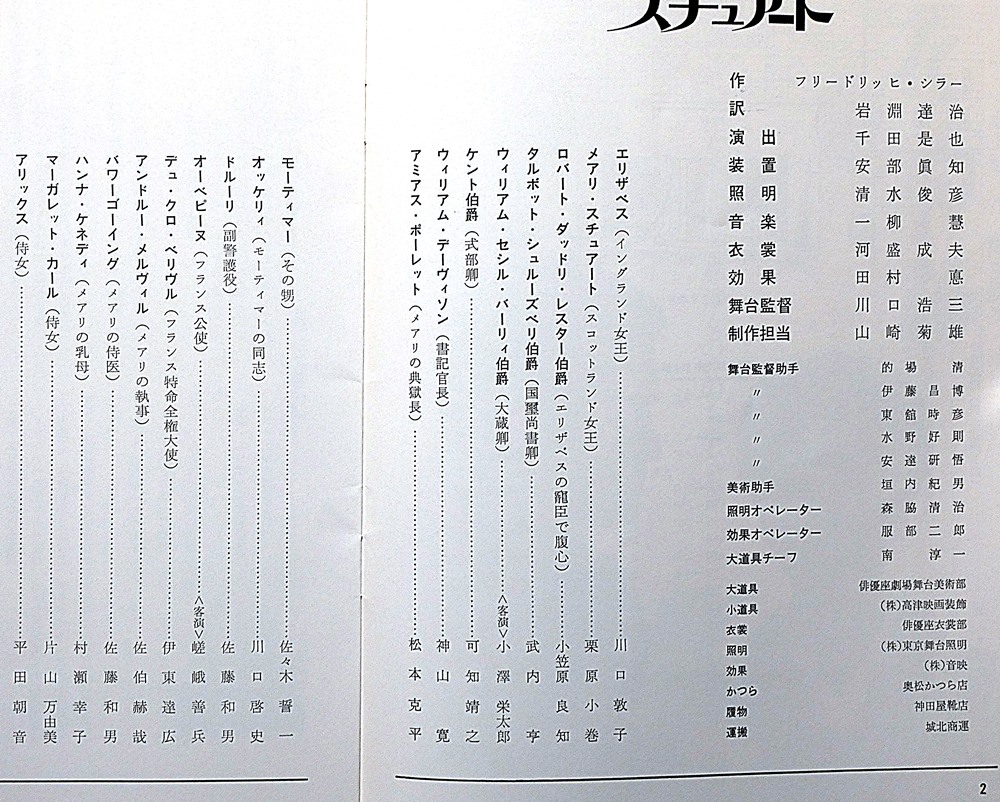 スチュアート
作 フリードリッヒ・シラー
訳 岩淵達治
演出 千田是也
装置 安部眞知
照明 清水俊彦
音楽 一柳慧
衣裳 河盛成夫
効果 田村悳
舞台監督 川口浩三
制作担当 山崎菊雄
舞台監督助手 的場清
〃 伊藤昌博
〃 東舘時彦
〃 水野好則
〃 安達研悟
美術助手 垣内紀男
照明オペレーター 森脇清治
効果オペレーター 服部二郎
大道具チーフ 南淳一
大道具 俳優座劇場舞台美術部
小道具 (株)高津映画装飾
衣裳 俳優座衣裳部
照明 (株)東京舞台照明
効果 (株)音映
かつら 奥松かつら店
履物 神田屋靴店
運搬 城北商運
エリザベス(イングランド女王)……川口敦子
メアリ・スチュアート(スコットランド女王)……栗原小巻
ロバート・ダッドリ・レスター伯爵(エリザベスの寵臣で腹心)……小笠原良知
タルボット・シュルーズベリ伯爵(国璽尚書卿)……武内亨
ウィリアム・セシル・バーリィ伯爵(大蔵卿)……<客演>小澤栄太郎
ケント伯爵(式部卿)……可知靖之
ウィリアム・デーヴィソン(書記官長)……神山寛
アミアス・ポーレット(メアリの典獄長)……松本克平
モーティマー(その甥)……佐々木誓一
オッケリィ(モーティマーの同志)……川口啓史
ドルーリ(副警護役)……佐藤和男
オーベピーヌ(フランス公使)……<客演>嵯峨善兵
デュ・クロ・ベリヴル(フランス特命全権大使)……伊東達広
アンドルー・メルヴィル(メアリの執事)……佐伯赫哉
バワーゴーイング(メアリの侍医)……佐藤和男
ハンナ・ケネディ(メアリの乳母)……村瀬幸子
マーガレット・カール(侍女)……片山万由美
アリックス(侍女)……平田朝音
2